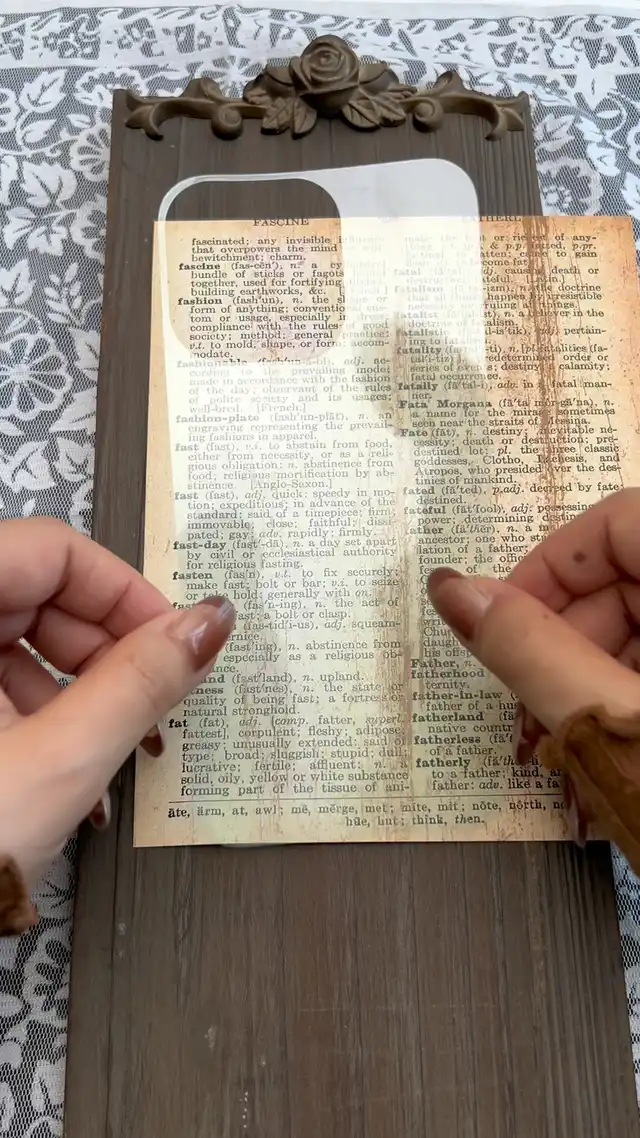 FASCINE
fascinated; any invisible
that overpowers the mind
bewitchment; charm.
fascine (fas-cēn'), n. a cy
bundle of sticks or fagots
together, used for fortifying
building earthworks, &c.
fashion (fash'un), n. the
form of anything; conventio
tom or usage, especially in
compliance with the rules good
society; method; general
v.t. to mold, shape, or form; accom-
modate.
fashionable adj.
according to the prevailing mode
made in accordance with the fashion
of the day; observant of the rules
of polite society and its usages;
well-bred. [French.]
fashion-plate (fash'un-plāt), n. an
engraving representing the prevail
ing fashions in apparel.
fast (fast), v.i. to abstain from food,
either from necessity, or as a reli-
gious obligation: n. abstinence from
food; religious mortification by ab-
stinence. [Anglo-Saxon.]
fast (fast), adj. quick; speedy in mo-
tion; expeditious; in advance of the
standard: said of a timepiece; firm;
immovable; close; faithful; dissi-
pated; gay: adv. rapidly; firmly.
fast-day (fast'-dā), n. a day set apart
by civil or ecclesiastical authority
for religious fasting.
fasten (fas'n), v.t. to fix securely;
make fast; bolt or bar; v.i. to seize
or take hold: generally with on.
(fas'n-ing), n. the act of
fast; a bolt or clasp.
(fas-tid'i-us), adj. squeam-
ing), n. abstinence from
especially as a religious ob-
(fast'land), n. upland.
ness (fast'nes), n. the state or
quality of being fast; a fortress or
natural stronghold.
fat (fat), adj. [comp. fatter, superl.
fattest], corpulent; fleshy; adipose;
greasy; unusually extended: said of
type; broad; sluggish; stupid; dull;
lucrative; fertile; affluent: n. a
solid, oily, yellow or white substance
forming part of the tissue of ani-
any-
p.pr.
to gain
fatal adj. causing death or
fatalism doctrine
happen by irresistible
ing all things.
pertain-
fatality
predetermined order or
series of events; destiny; calamity;
fatal occurrence.
fatally (fā'tal-i), adv. in a fatal man-
ner.
Fata Morgana (fä'tä môr-gä'nä), n.
a name for the mirage sometimes
seen near the straits of Messina.
Fate (fāt), n. destiny; inevitable ne-
cessity; death or destruction; pre-
destined lot: pl. the three classic
goddesses, Clotho, Lachesis, and
Atropos, who presided over the des-
tinies of mankind.
fated (fā'ted), p.adj. decreed by fate;
destined.
fateful (fāt'fool), adj. possessing
power; determining destiny
father (fä'ther), n. a m
ancestor; one who st
lation of a father;
founder; the offic
of the
Father, n.
fatherhood
ternity.
father-in-law
father of a hus
fatherland (fä
native country
fatherless (fä't
of a father.
fatherly (fä'ther-li),
to a father; kind,
father: adv. like a fa
āte, ärm, at, awl; mē, mērge, met; mīte, mit; nōte, nôrth, no
hūe, hut; think, then.